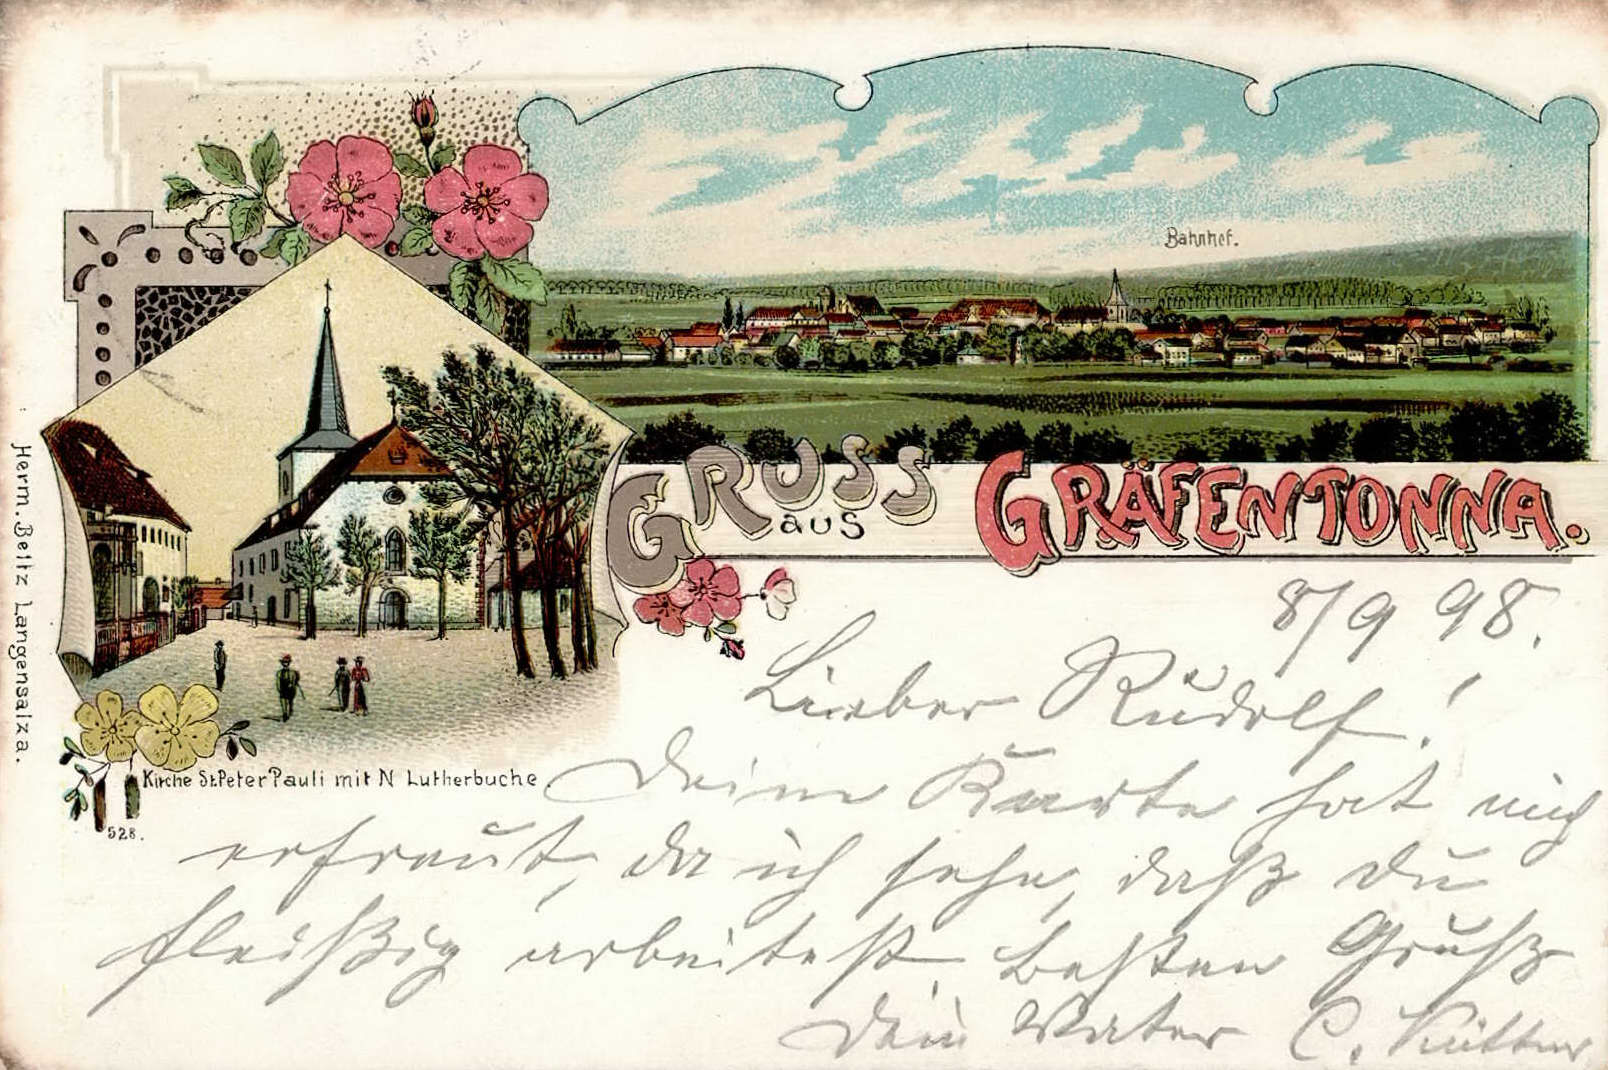 Bahnhof.
GRUSS
aus
GRÄFENTONNA.
Herm. Beltz Langensalza.
Kirche St. Peter Pauli mit N Lutherbuche
528.
8/9 98.
Lieber Rudolf!
Deine Karte hat mich
erfreut, da ich sehe, daß Du
fleißig arbeitest. Besten Gruß
Dein Vater C.